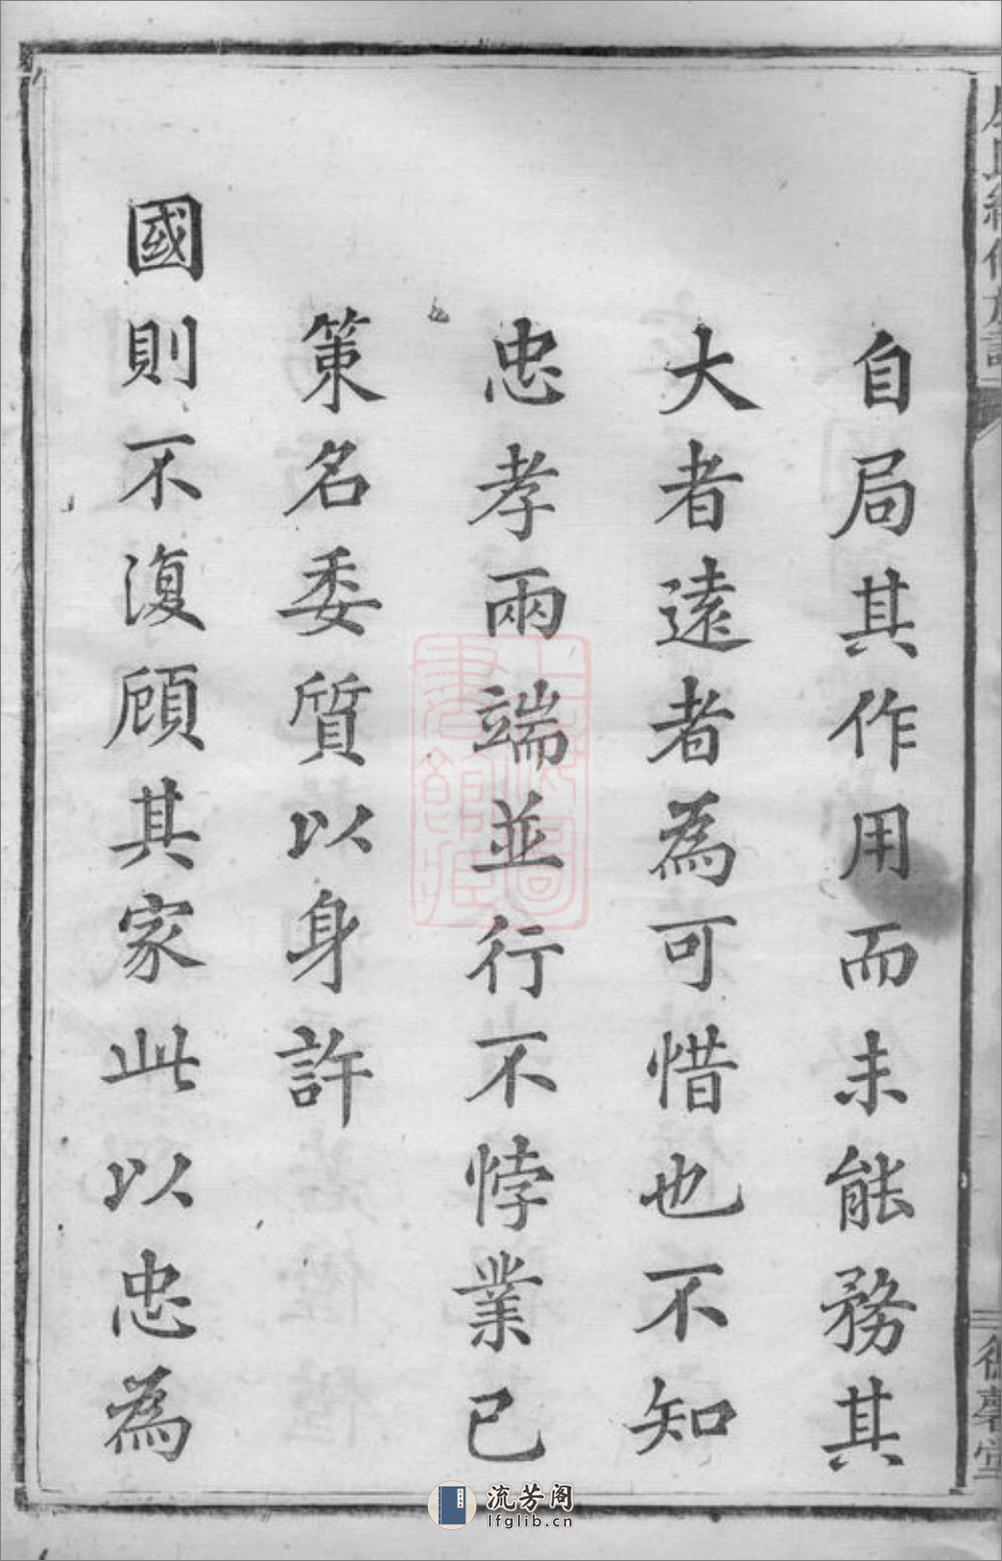 自局其作用而未能務其
大者遠者為可惜也不知
忠孝兩端並行不悖業已
策名委質以身許
國則不復顧其家此以忠為
德馨堂
上海圖書館藏
流芳阁
lfglib.cn